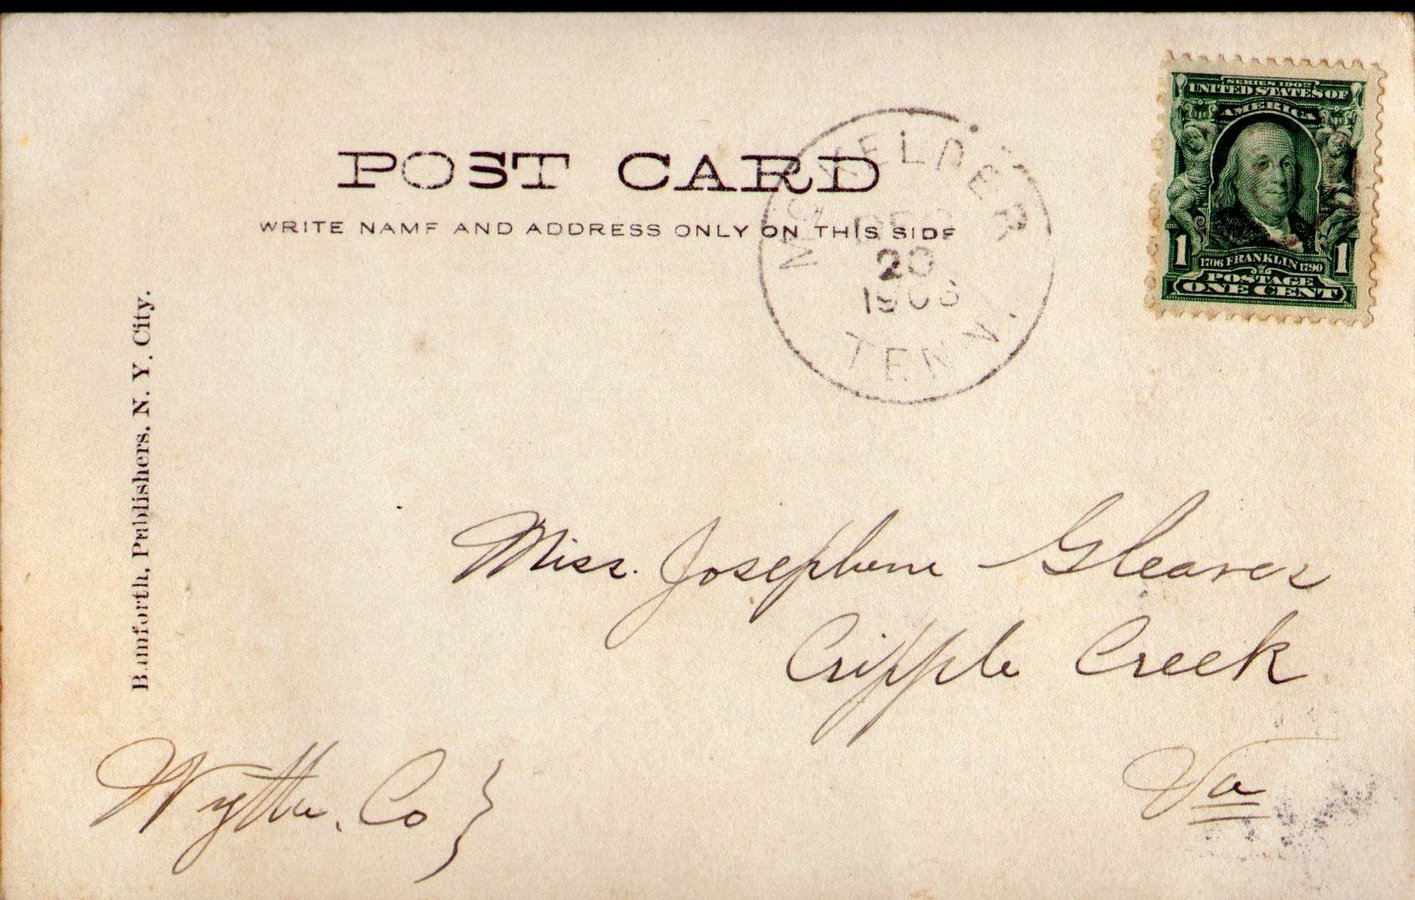 POST CARD
WRITE NAME AND ADDRESS ONLY ON THIS SIDE
SERIES 1902
UNITED STATES OF
AMERICA
1 1
1706 FRANKLIN 1790
POSTAGE
ONE CENT
20
TENN.
Bamforth, Publishers, N. Y. City.
Miss. Josephine Gleaves
Cripple Creek
Va
Wythe. Co }